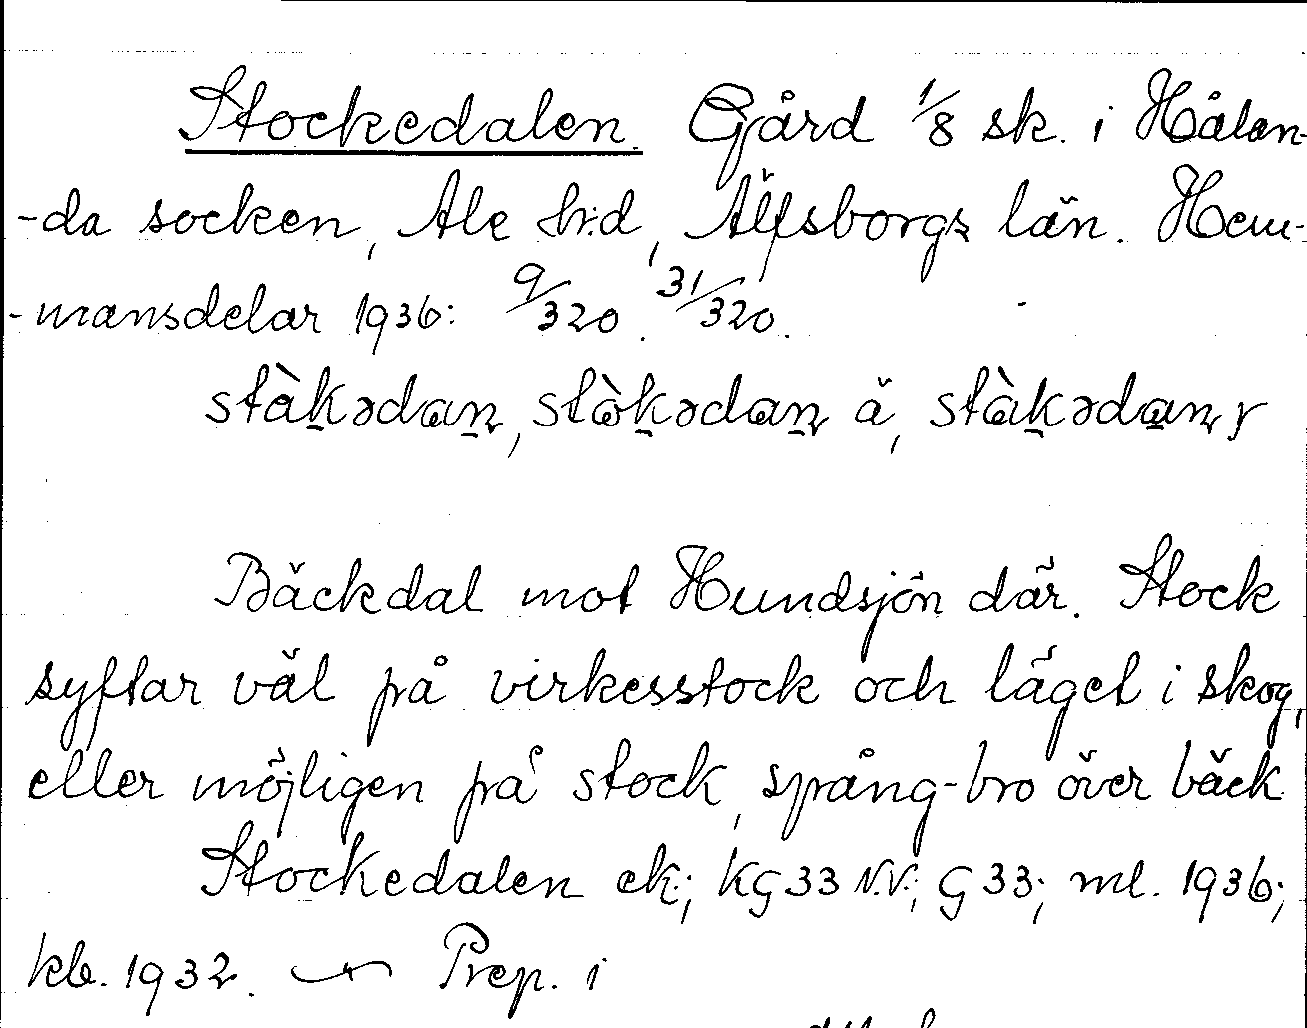 Stockedalen. Gård 1/8 sk. i Hålan-
-da socken, Ale hrd, Älfsborgs län. Hem-
-mansdelar 1936: 9/320. 31/320.
stàkədan, stòkədan ä, stàkədan r
Bäckdal mot Hundsjön där. Stock
syftar väl på virkesstock och läget i skog,
eller möjligen på stock, spång-bro över bäck.
Stockedalen ek.; KG33 N.V.; G33; ml. 1936;
kb. 1932. Prep. i